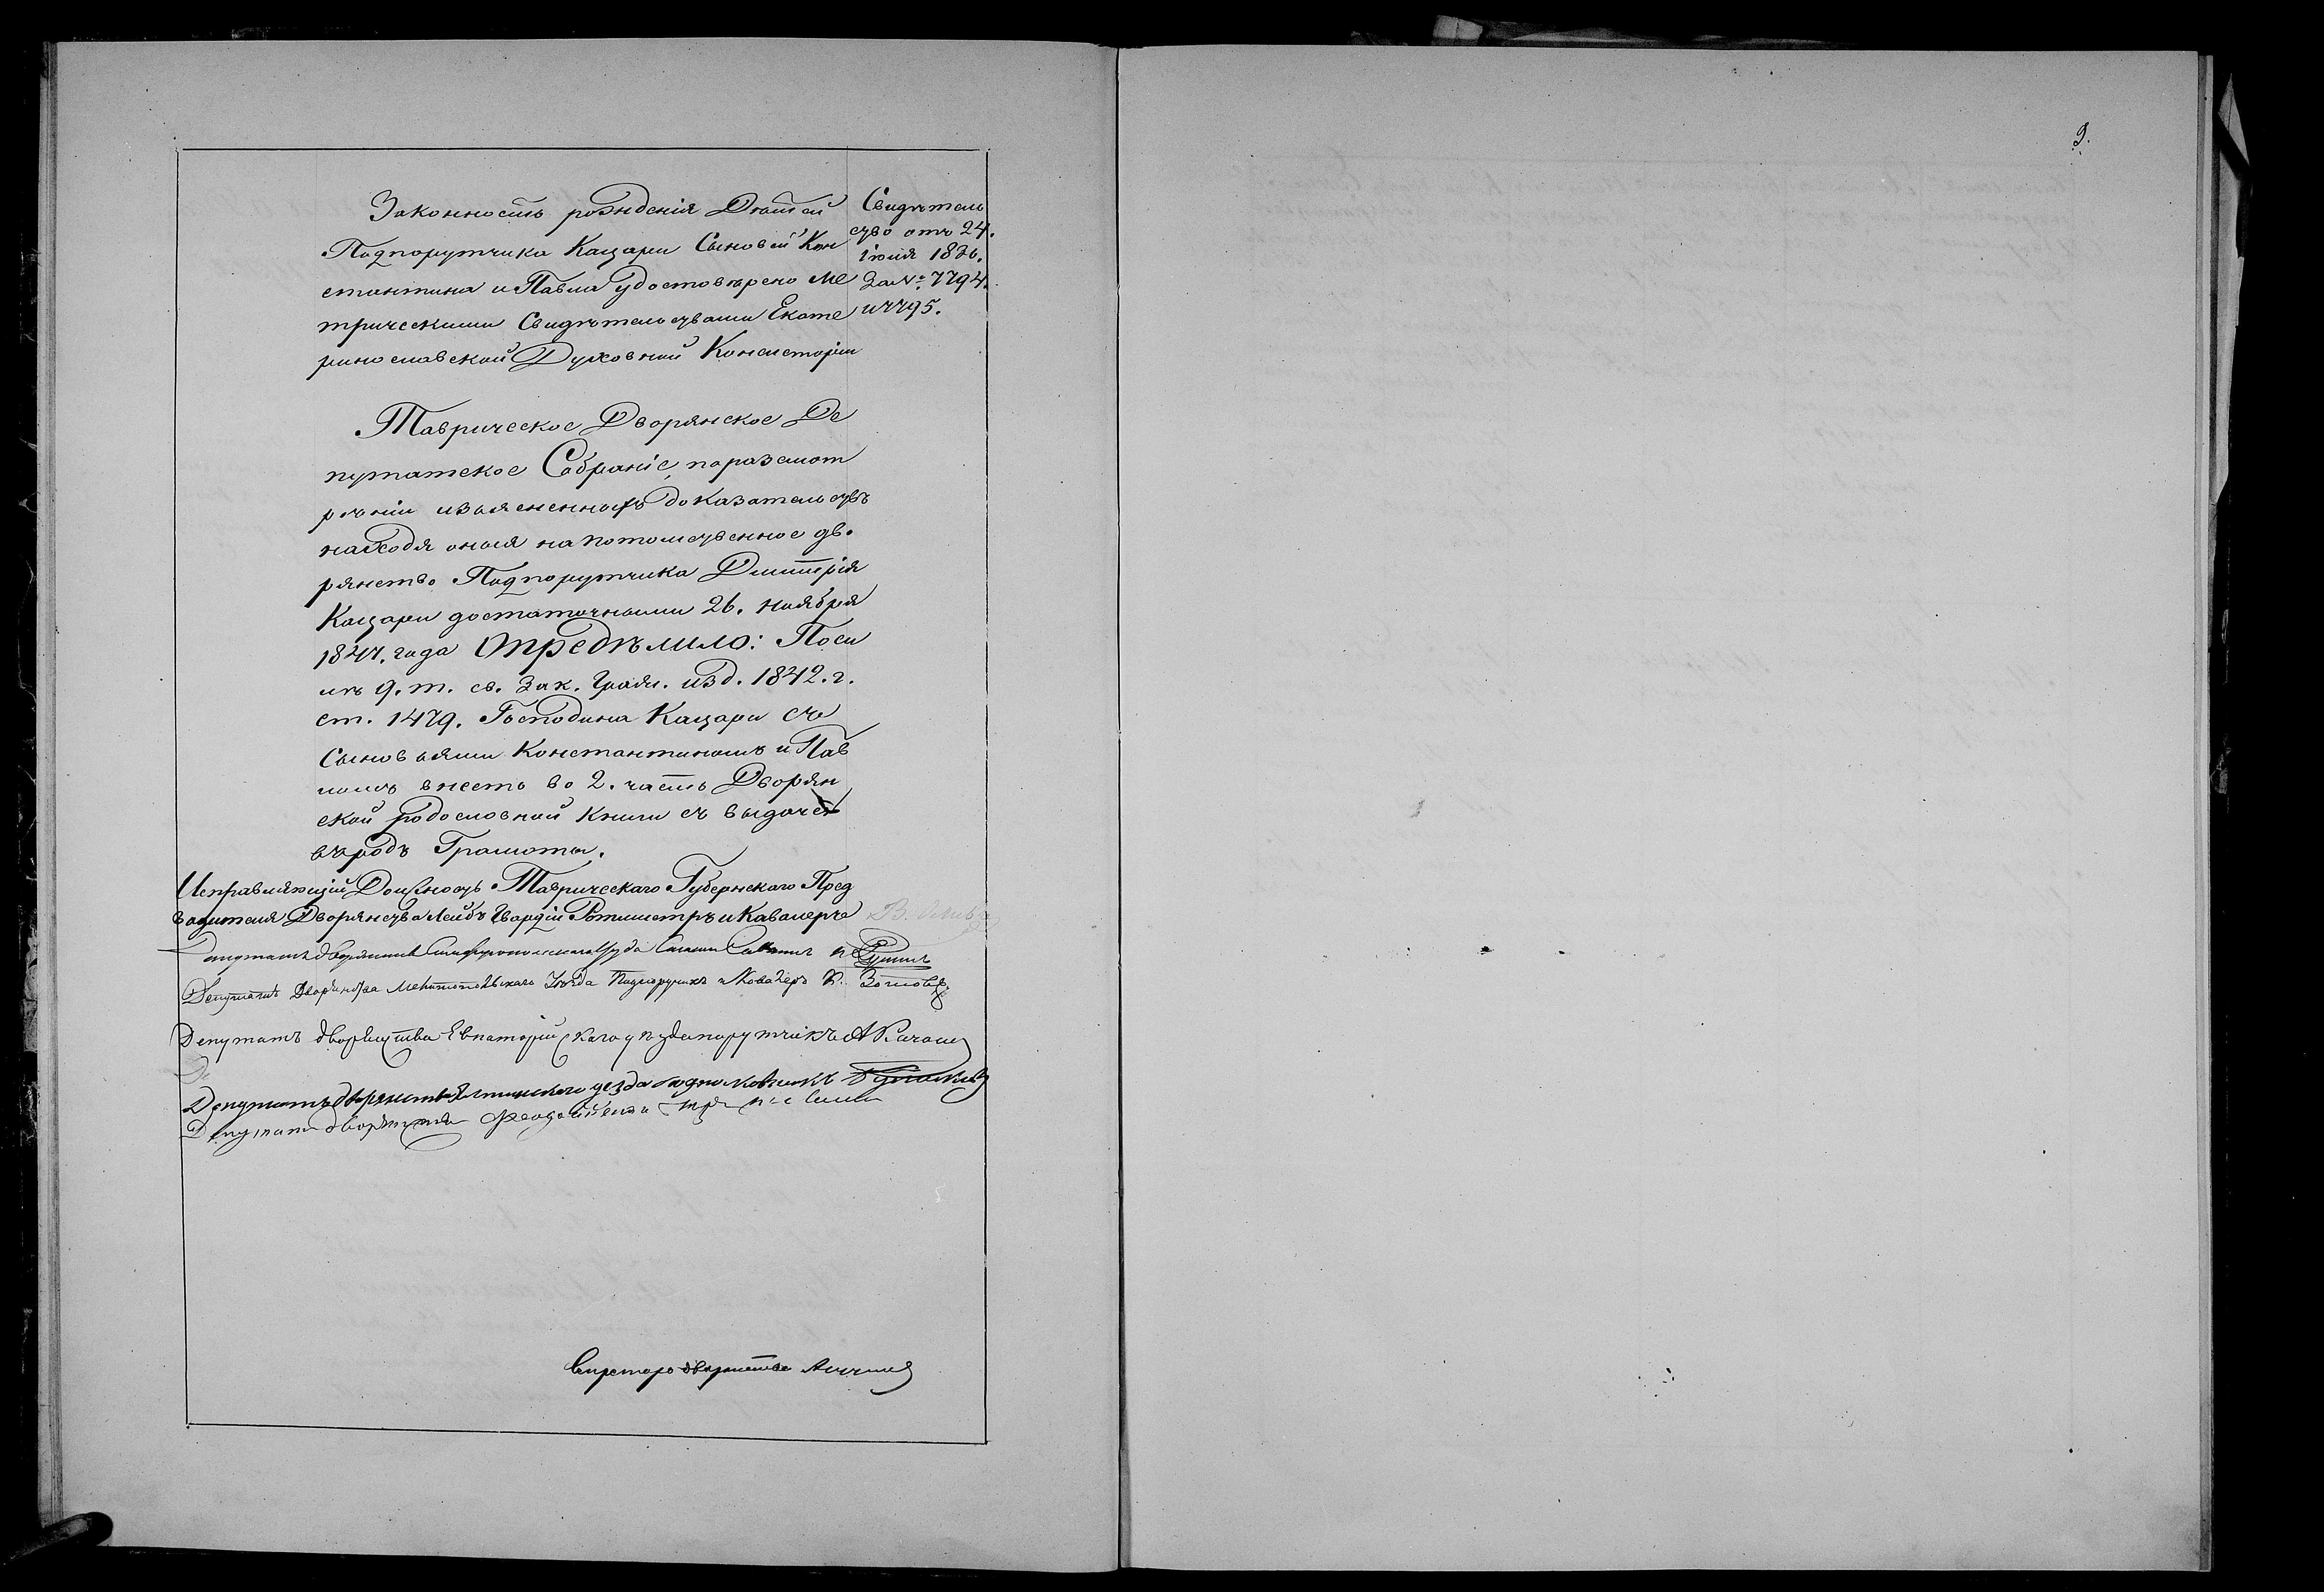 9.
Законность рожденія Дѣтей
Подпорутчика Кацари Сыновей Кон
стантина и Павла удостовѣрено Ме
трическими Свидѣтельствами Екате
ринославской Духовной Консисторіи
Свидѣтель
ство отъ 24.
Іюля 1826.
За № 7794.
и 7795.
Таврическое Дворянское Де
путатское Собраніе, по разсмот
рѣніи изъясненныхъ доказательствъ
находя оныя на потомственное дво
рянство Подпорутчика Дмитрія
Кацари достаточными 26. Ноября
1847. года Опредѣлило: По си
лѣ 9. т. св. Зак. Гражд. изд. 1842. г.
ст. 1479. Господина Кацари съ
Сыновьями Константиномъ и Пав
ломъ внесть во 2. часть Дворян
ской родословной Книги съ выдачею
въ родъ Грамоты.
Исправляющій Должность Таврическаго Губернскаго Пред
водителя Дворянства Лейбъ Гвардіи Ротмистръ и Кавалеръ В.
Депутатъ дворянства Симферопольскаго Уѣзда
Депутатъ Дворянства Мелитопольскаго Уѣзда Подпоручикъ и Кавалеръ Зотовъ
Депутатъ дворянства Евпаторійскаго уѣзда порутчикъ
Депутатъ дворянства Ялтинскаго уезда подполковникъ
Депутатъ дворянства Феодосійскаго
Секретарь дворянства